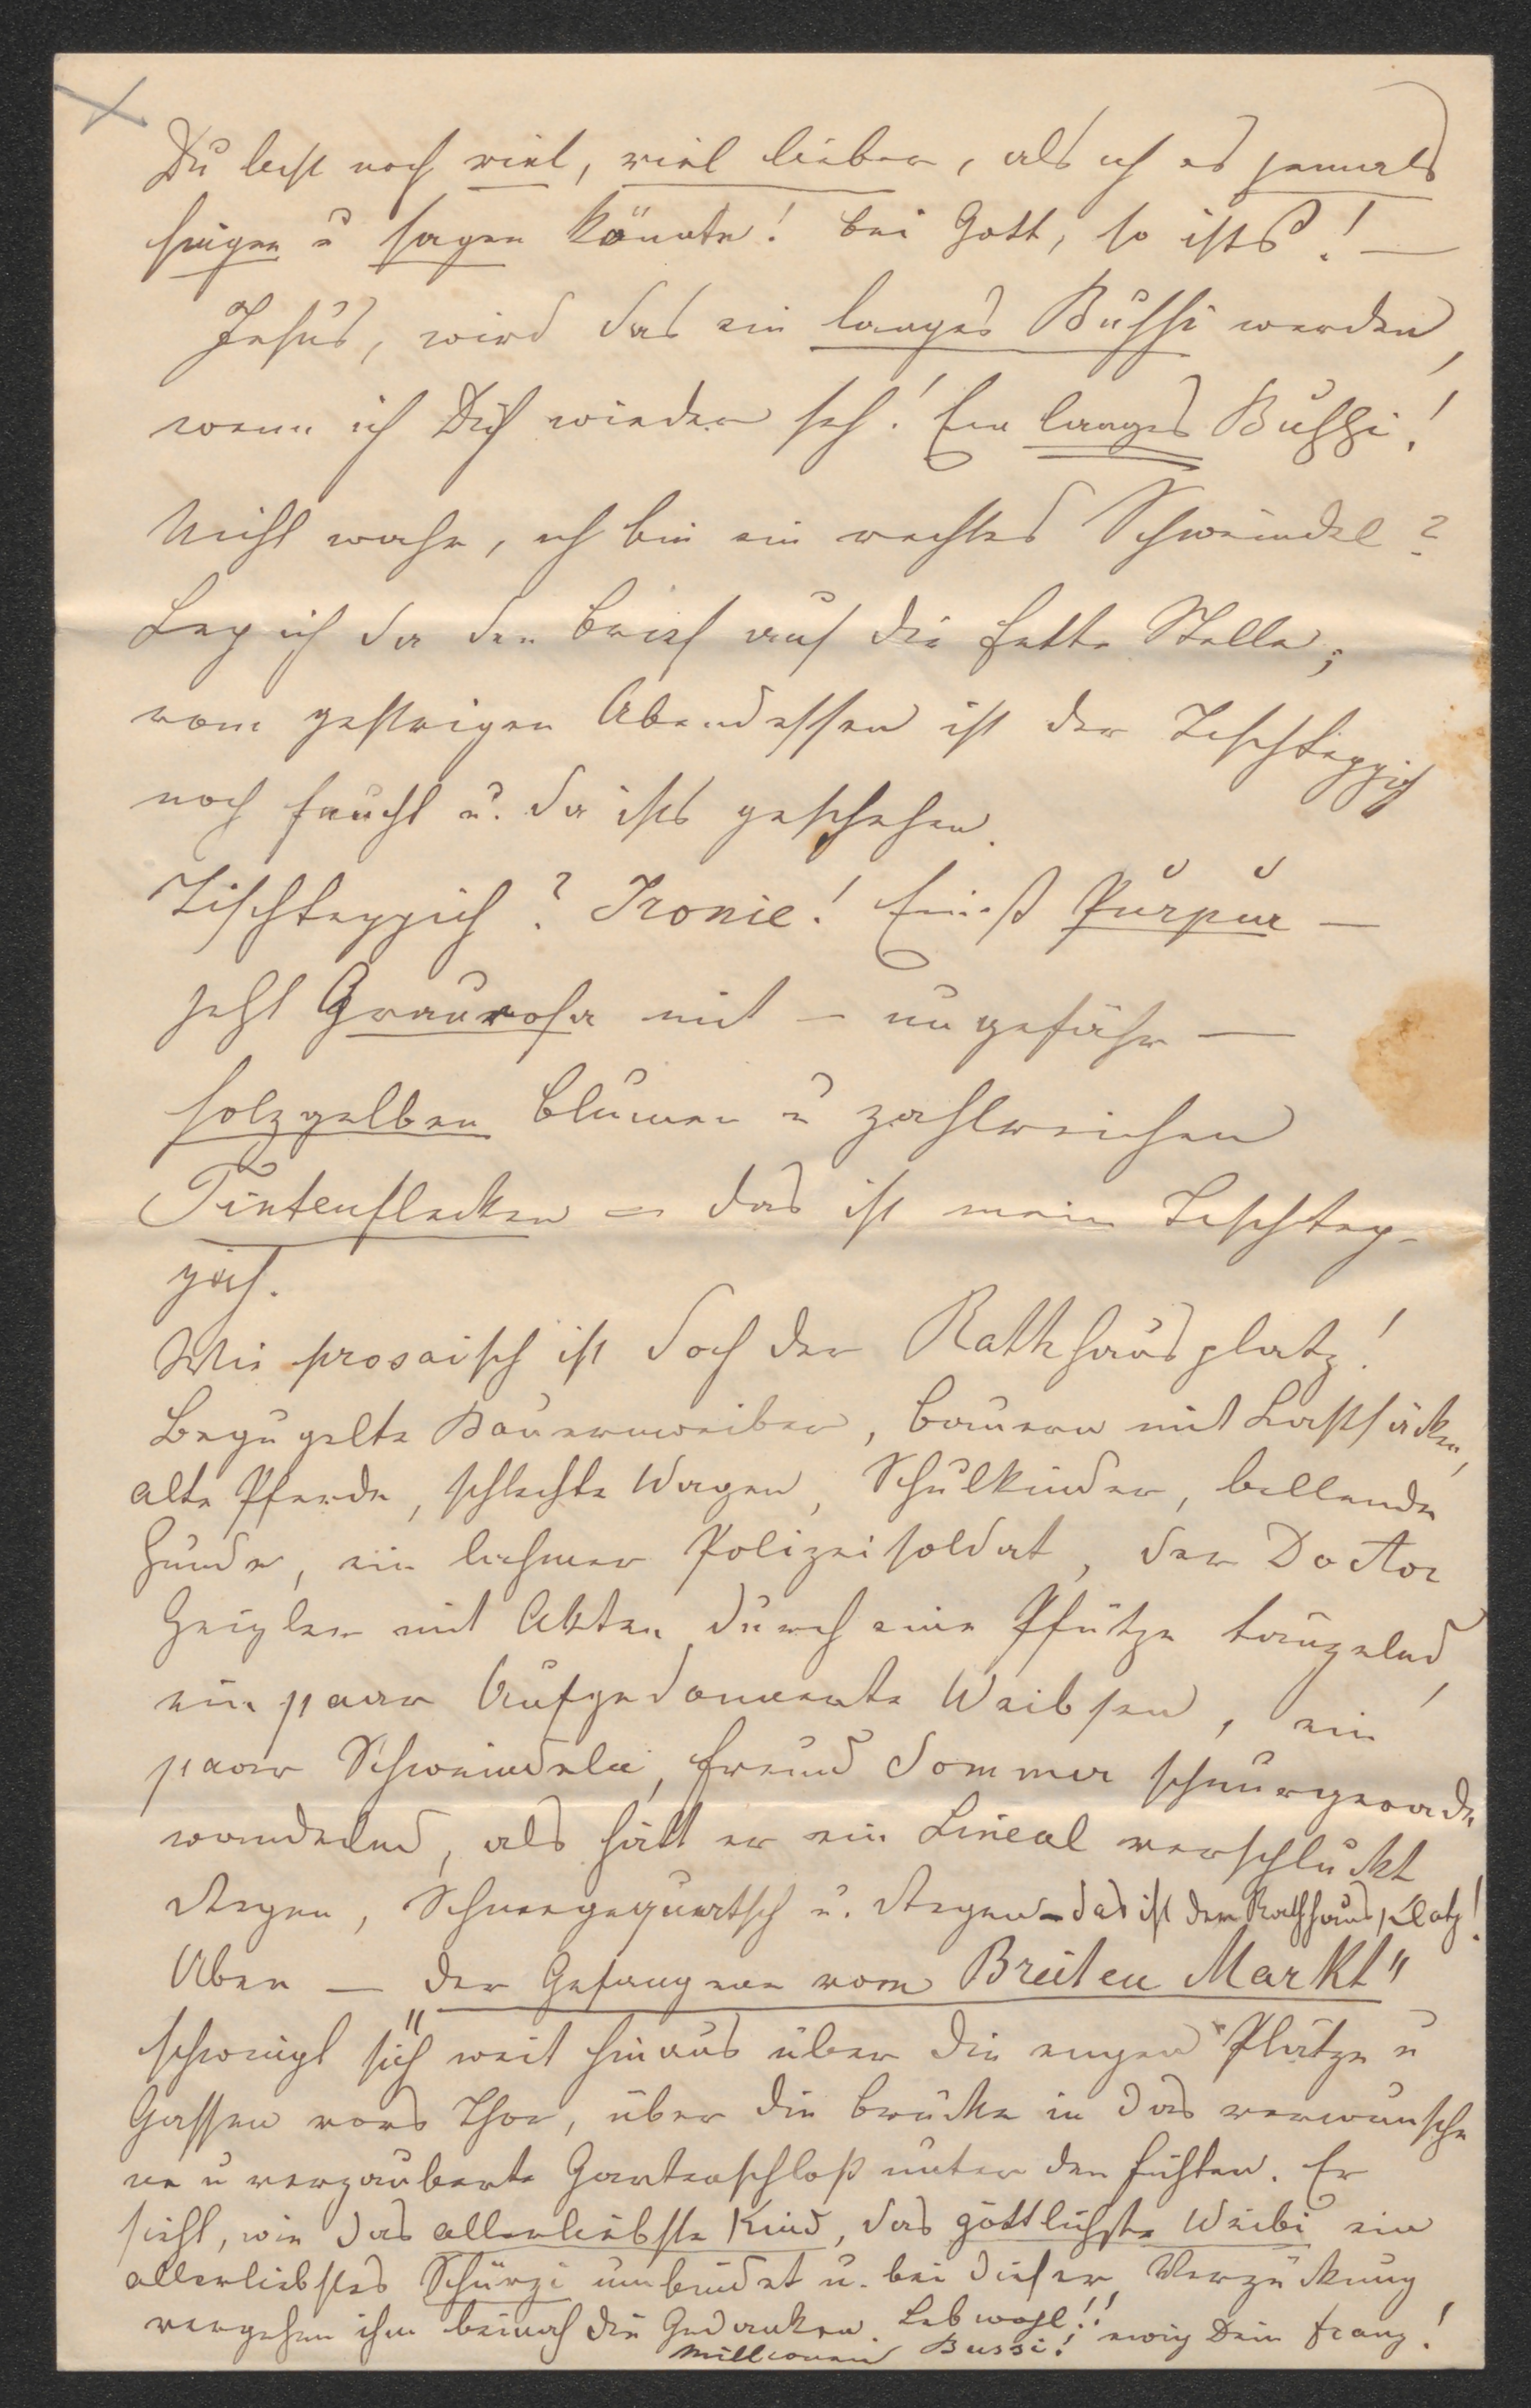 Du bist noch viel, viel lieber, als ich es jemals
singen u sagen könnte! Bei Gott, so ists! —
Jesus, wird das ein langes Bussi werden,
wenn ich Dich wieder seh! Ein langes Bussi!
Nicht wahr, ich bin ein rechtes Schweindel?
Leg ich da den Brief auf die fette Stelle;
vom gestrigen Abendessen ist der Tischteppich
noch feucht u. da ists geschehen.
Tischteppich? Ironie! Einst Purpur —
jetzt Graurosa mit — ungefähr —
holzgelben Blumen u zahlreichen
Tintenflecken = das ist mein Tischtep-
pich.
Wie prosaisch ist doch der Rathhausplatz!
Bauernweiber, Bauern mit Lastsäcken,
alte Pferde, schlechte Wagen, Schulkinder, bellende
Hunde, ein lahmer Polizeisoldat, der Doctor
mit Akten durch eine Pfütze tänzelnd,
ein paar Aufgedonnerte Weibsen, ein
paar Schweindeln, Freund Sommer schnurgerade
wandelnd, als hätt er ein Lineal verschluckt
Regen, Schneegequatsch u. Regen – das ist der Rathhausplatz!
Aber — „der Gefangene vom Breiten Markt"
schwingt sich weit hinaus über die engen Plätze u
Gassen vors Thor, über die Brücke in das verwunsche
ne u verzauberte Gartenschloß unter den Fichten. Er
sieht, wie das allerliebste Kind, das göttlichste Weibi ein
allerliebstes Schürzi umbindet u. bei dieser Verzückung
vergehen ihm beinah die Gedanken. Leb wohl!! ewig Dein Franz!
Millionen Bussi!